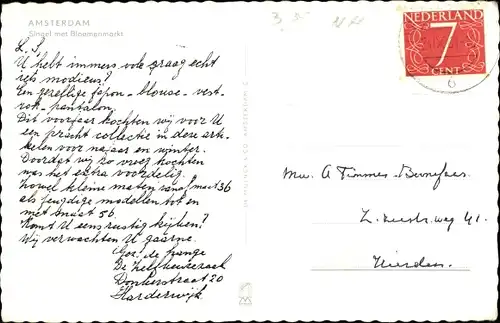 AMSTERDAM
Singel met Bloemenmarkt
L.S.
U hebt immers ook graag echt
iets modieus?
Een gezellige japon - blouse - vest-
rok - pantalon.
Dit voorjaar kochten wij voor U
een pracht collectie in deze arti-
kelen voor najaar en winter.
Doordat wij zo vroeg kochten
was het extra voordelig.
Zowel kleine maten vanaf maat 36
als jeugdige modellen tot en
met maat 56.
Komt U eens rustig kijken?
Wij verwachten U gaarne.
Gez. de Lange
De Zelfkeuzezaak
Donkerstraat 20
Harderwijk
NEDERLAND
7
CENT
Mevr. A Timmer-
Z. zeestr. weg 41.
Hierden.